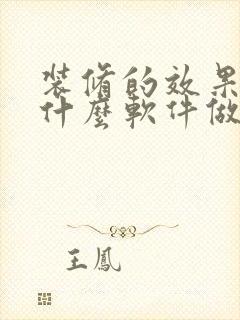 装脩的效果
什麽軟件做
王鳳